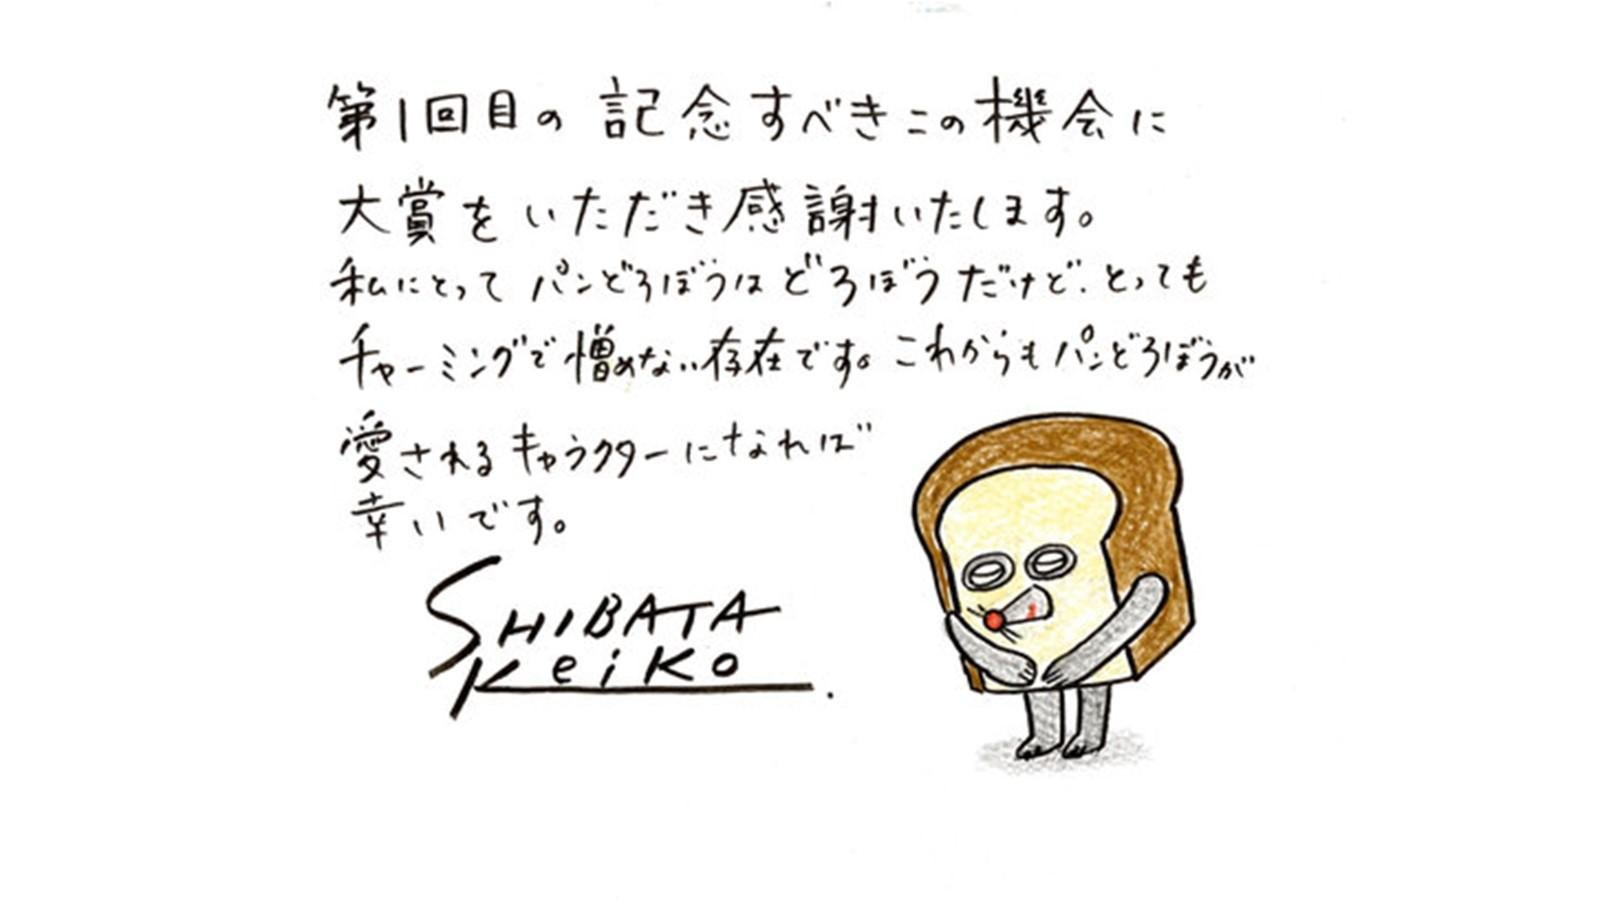 第1回目の記念すべきこの機会に
大賞をいただき感謝いたします。
私にとってパンどろぼうはどろぼうだけど、とっても
チャーミングで憎めない存在です。これからもパンどろぼうが
愛されるキャラクターになれば
幸いです。
SHIBATA
Keiko.